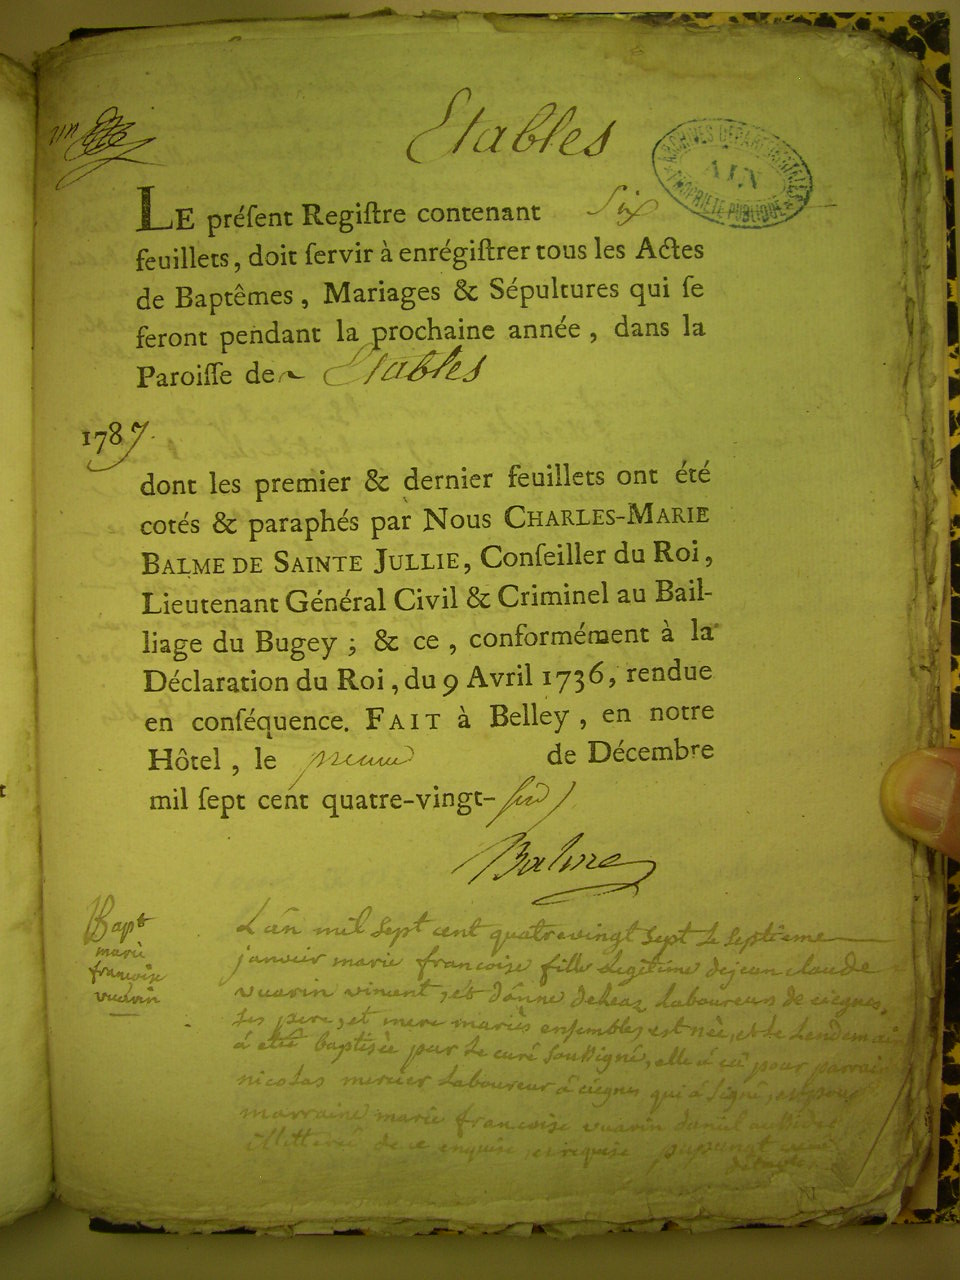 un
Etables
ARCHIVES DÉPARTEMENTALES
AIN
PROPRIÉTÉ PUBLIQUE
LE préſent Regiſtre contenant Six
feuillets, doit ſervir à enrégiſtrer tous les Actes
de Baptêmes, Mariages & Sépultures qui ſe
feront pendant la prochaine année, dans la
Paroiſſe de Etables
1787.
dont les premier & dernier feuillets ont été
cotés & paraphés par Nous CHARLES-MARIE
BALME DE SAINTE JULLIE, Conſeiller du Roi,
Lieutenant Général Civil & Criminel au Bail-
liage du Bugey; & ce, conformément à la
Déclaration du Roi, du 9 Avril 1736, rendue
en conſéquence. FAIT à Belley, en notre
Hôtel, le premier de Décembre
mil ſept cent quatre-vingt-six
Balme
Bapt
marie
françoise
vuarin
L'an mil sept cent quatrevingt sept le septieme
janvier marie francoise fille legitime de jean claude
vuarin vincent, et d'anne laboureurs de ceignes,
ses pere, et mere mariés ensembles est née, et le lendemain
a eté baptisée par le curé soussigné, elle a eû pour parrain
nicolas mercier laboureur à ceignes qui a signé, et pour
marraine marie françoise vuarin
illitterée de ce enquise, et requise